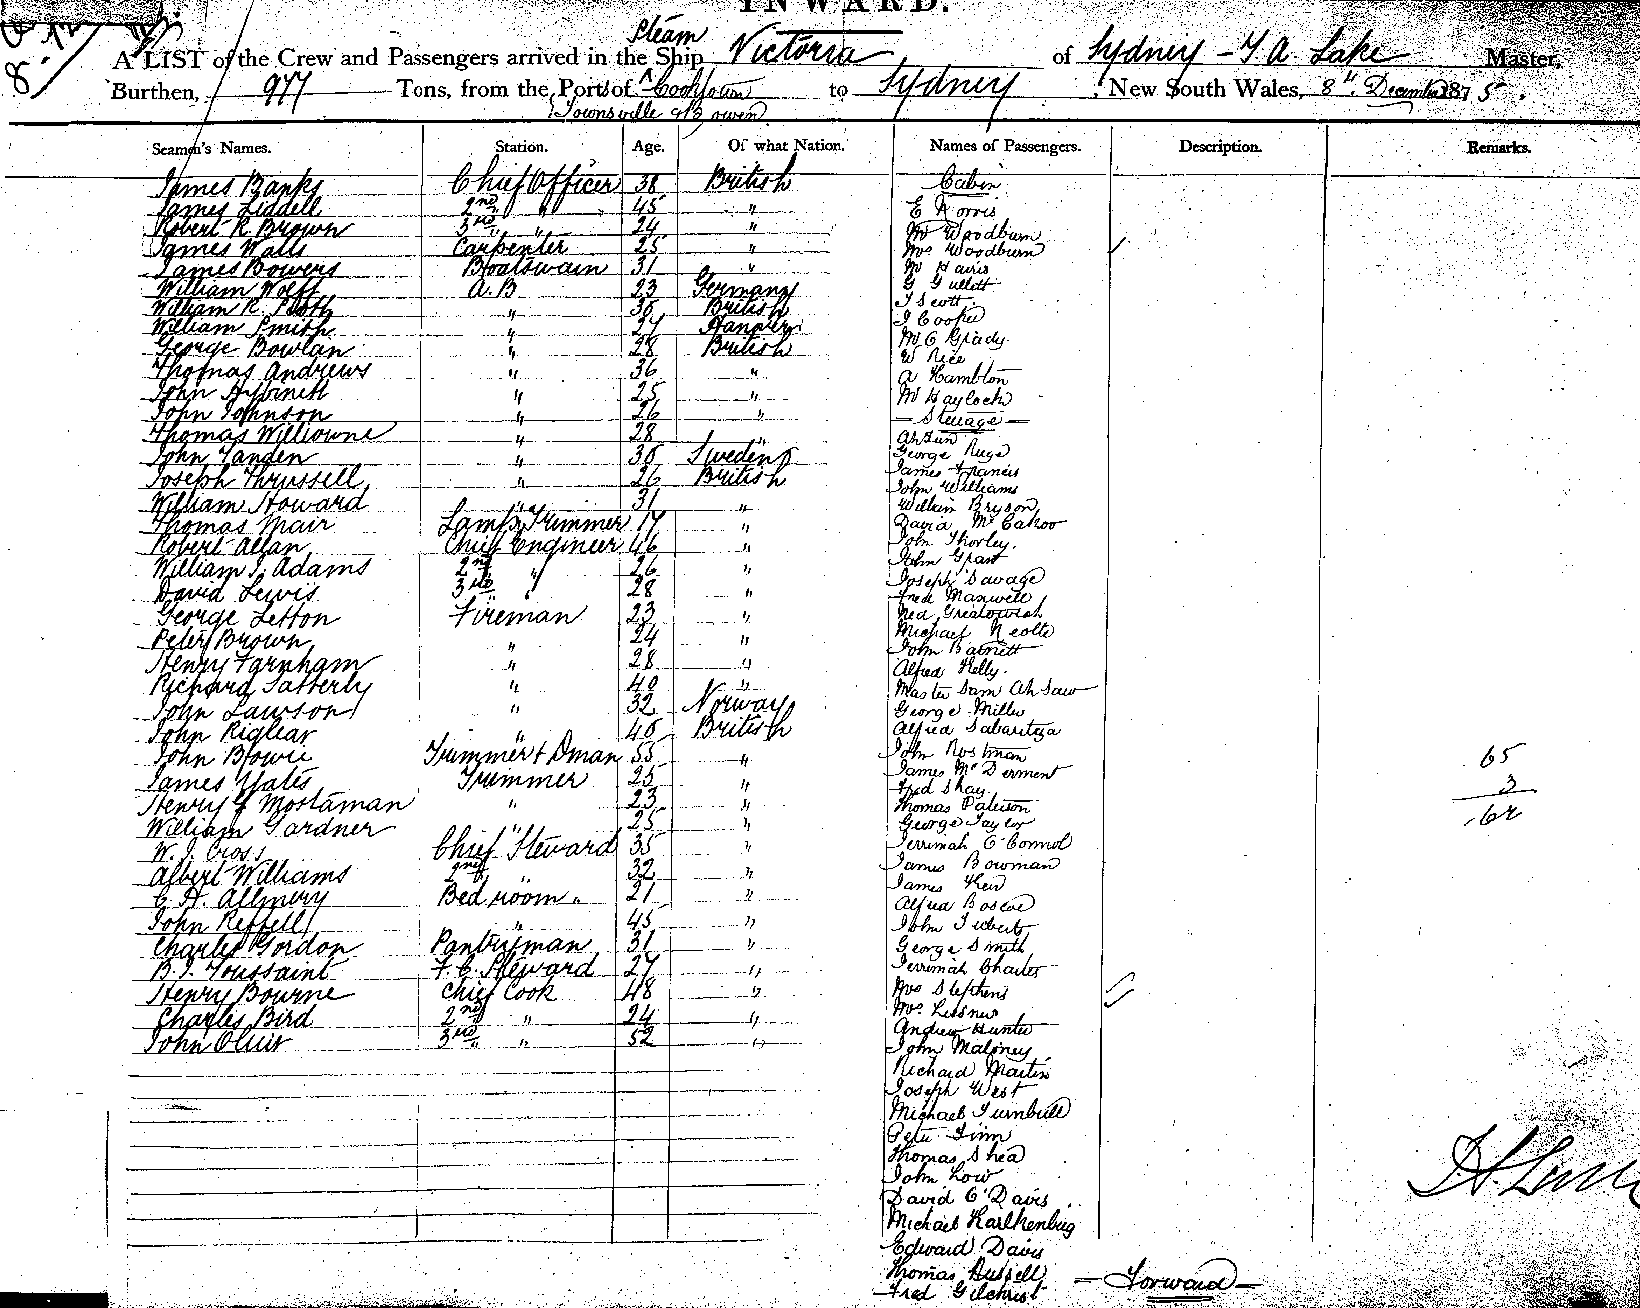 INWARD.
A LIST of the Crew and Passengers arrived in the Steam Ship Victoria of Sydney - T. A. Lake Master,
Burthen, 977 Tons, from the Ports of Cooktown to Sydney, New South Wales, 8th December 1875.
Townsville & Bowen
Seamen's Names. Station. Age. Of what Nation. Names of Passengers. Description. Remarks.
James Banks Chief Officer 38 British
James Liddell 2nd " 45 "
Robert R. Brown 3rd " 24 "
James Watts Carpenter 25 "
James Bowers Boatswain 31 "
William Wolff A.B 23 Germany
William R. 36 British
William Smith " 27 Hanover
George Bowlan " 28 British
Thomas Andrews " 36 "
John " 25 "
John Johnson " 26 "
Thomas " 28 "
John Tanden " 36 Sweden
Joseph Thrussell " 26 British
William Howard " 31 "
Thomas Mair Lamp Trimmer 17 "
Robert Allan Chief Engineer 46 "
William J. Adams 2nd " 26 "
David Lewis 3rd " 28 "
George Letton Fireman 23 "
Peter Brown " 24 "
Henry Farnham " 28 "
Richard Satterly " 40 "
John Lawson " 32 Norway
John Riglear " 40 British
John Bowie Trimmer & Dman 55 "
James Yates Trimmer 25 "
Henry Mostaman " 23 "
William Gardner " 25 "
W. J. Cross Chief Steward 35 "
Albert Williams 2nd " 32 "
C. H. Allmury Bed room " 21 "
John Reffell " 45 "
Charles Gordon Pantryman 31 "
B. J. Toussaint F. C. Steward 27 "
Henry Bourne Chief Cook 48 "
Charles Bird 2nd " 24 "
John 3rd " 52 "
Cabin
E Norris
Mr Woodburn
Mrs Woodburn
M Havis
G Gullett
J Scott
J Cooper
Mr O Grady
W Rice
A Hambton
Mr Haylock
- Steerage -
George Ruge
James Francis
John Williams
William Bryson
David McCahoo
John Thorley
John Grant
Joseph Savage
Fred Maxwell
Ned
Michael Neolte
John Barnett
Alfred Kelly
Master Sam Ah Saw
George Miller
Alfred
John Rostman
James McDerment
Fred Shay
Thomas Paterson
George Taylor
Jerrimah O'Connol
James Bowman
James Keir
Alfred Boscoe
John
George Smith
Jerrimah Charles
Mrs Stephens
Mrs Lessner
Andrew Hunter
John Maloney
Richard Martin
Joseph West
Michael Turnbull
Peter Finn
Thomas Shea
John Low
David O'Davis
Michael Karlkenbug
Edward Davis
Thomas Russell
Fred Gilchrist - Forward -
65
3
62